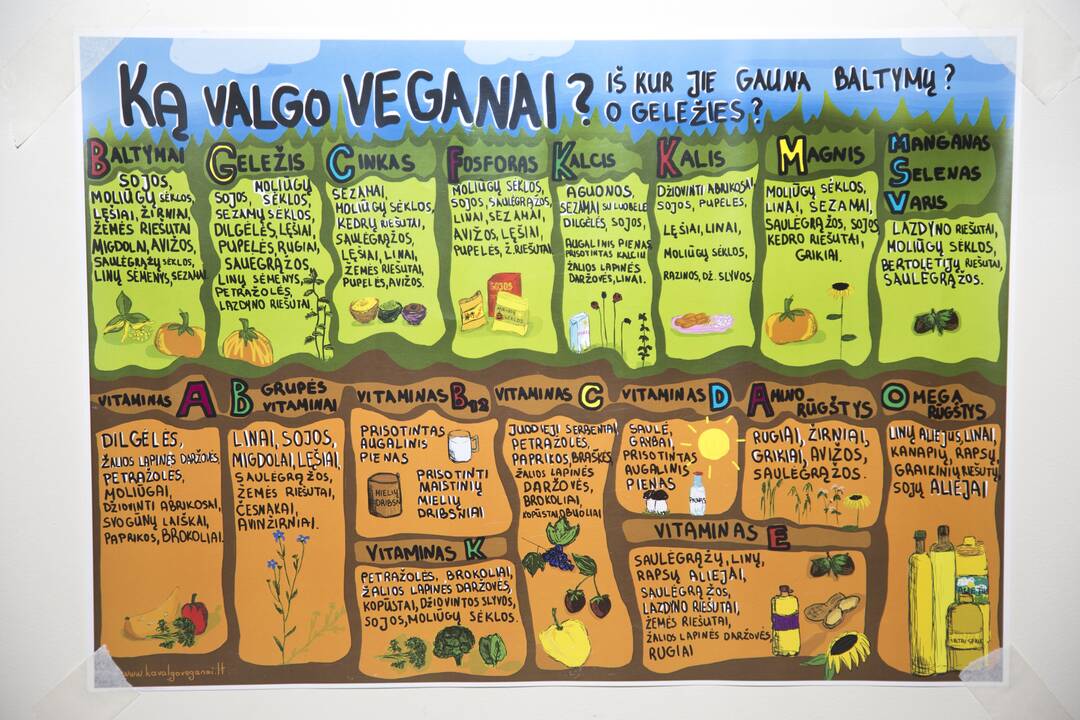 KĄ VALGO VEGANAI?
IŠ KUR JIE GAUNA BALTYMŲ?
O GELEŽIES?
BALTYMAI
SOJOS,
MOLIŪGŲ SĖKLOS,
LĘŠIAI, ŽIRNIAI,
ŽEMĖS RIEŠUTAI
MIGDOLAI, AVIŽOS,
SAULĖGRĄŽŲ SĖKLOS,
LINŲ SĖMENYS, SEZAMAI
GELEŽIS
SOJOS, MOLIŪGŲ
SĖKLOS,
SEZAMŲ SĖKLOS,
DILGĖLĖS, LĘŠIAI,
PUPELĖS, RUGIAI,
SAUEGRĄŽOS,
LINŲ SĖMENYS,
PETRAŽOLĖS,
LAZDYNO RIEŠUTAI
CINKAS
SEZAMAI,
MOLIŪGŲ SĖKLOS,
KEDRŲ RIEŠUTAI,
SAULĖGRĄŽOS,
LĘŠIAI, LINAI,
ŽEMĖS RIEŠUTAI,
PUPELĖS, AVIŽOS.
FOSFORAS
MOLIŪGŲ SĖKLOS,
SOJOS, SAULĖGRĄŽOS,
LINAI, SEZAMAI,
AVIŽOS, LĘŠIAI,
PUPELĖS, Ž.RIEŠUTAI
SOJOS
KALCIS
AGUONOS,
SEZAMAI SU LUOBELE
DILGĖLĖS, SOJOS,
AUGALINIS PIENAS
PRISOTINTAS KALCIU
ŽALIOS LAPINĖS
DARŽOVĖS, LINAI.
KALIS
DŽIOVINTI ABRIKOSAI,
SOJOS, PUPELĖS,
LĘŠIAI, LINAI,
MOLIŪGŲ SĖKLOS,
RAZINOS, DŽ. SLYVOS.
MAGNIS
MOLIŪGŲ SĖKLOS,
LINAI, SEZAMAI,
SAULĖGRĄŽOS, SOJOS
KEDRO RIEŠUTAI,
GRIKIAI.
MANGANAS
SELENAS
VARIS
LAZDYNO RIEŠUTAI,
MOLIŪGŲ SĖKLOS,
BERTOLETIJŲ RIEŠUTAI,
SAULĖGRĄŽOS.
VITAMINAS A
DILGĖLĖS,
ŽALIOS LAPINĖS DARŽOVĖS,
PETRAŽOLĖS,
MOLIŪGAI,
DŽIOVINTI ABRIKOSAI,
SVOGŪNŲ LAIŠKAI,
PAPRIKOS, BROKOLIAI.
B GRUPĖS
VITAMINAI
LINAI, SOJOS,
MIGDOLAI, LĘŠIAI,
SAULĖGRĄŽOS,
ŽEMĖS RIEŠUTAI,
ČESNAKAI,
AVINŽIRNIAI.
VITAMINAS B12
PRISOTINTAS
AUGALINIS
PIENAS
PRISOTINTI
MAISTINIŲ
MIELIŲ
DRIBSNIAI
MIELIŲ
DRIBSN
VITAMINAS K
PETRAŽOLĖS, BROKOLIAI,
ŽALIOS LAPINĖS DARŽOVĖS,
KOPŪSTAI, DŽIOVINTOS SLYVOS,
SOJOS, MOLIŪGŲ SĖKLOS.
VITAMINAS C
JUODIEJI SERBENTAI,
PETRAŽOLĖS,
PAPRIKOS, BRAŠKĖS,
ŽALIOS LAPINĖS
DARŽOVĖS,
BROKOLIAI,
KOPŪSTAI, OBUOLIAI
VITAMINAS D
SAULĖ,
GRYBAI,
PRISOTINTAS
AUGALINIS
PIENAS
PIENAS
AMINO
RŪGŠTYS
RUGIAI, ŽIRNIAI,
GRIKIAI, AVIŽOS,
SAULĖGRĄŽOS.
VITAMINAS E
SAULĖGRĄŽŲ, LINŲ,
RAPSŲ ALIEJAI,
SAULĖGRĄŽOS,
LAZDYNO RIEŠUTAI,
ŽEMĖS RIEŠUTAI,
ŽALIOS LAPINĖS DARŽOVĖS,
RUGIAI
OMEGA
RŪGŠTYS
LINŲ ALIEJUS, LINAI,
KANAPIŲ, RAPSŲ,
GRAIKINIŲ RIEŠUTŲ,
SOJŲ ALIEJAI
www.kavalgoveganai.lt